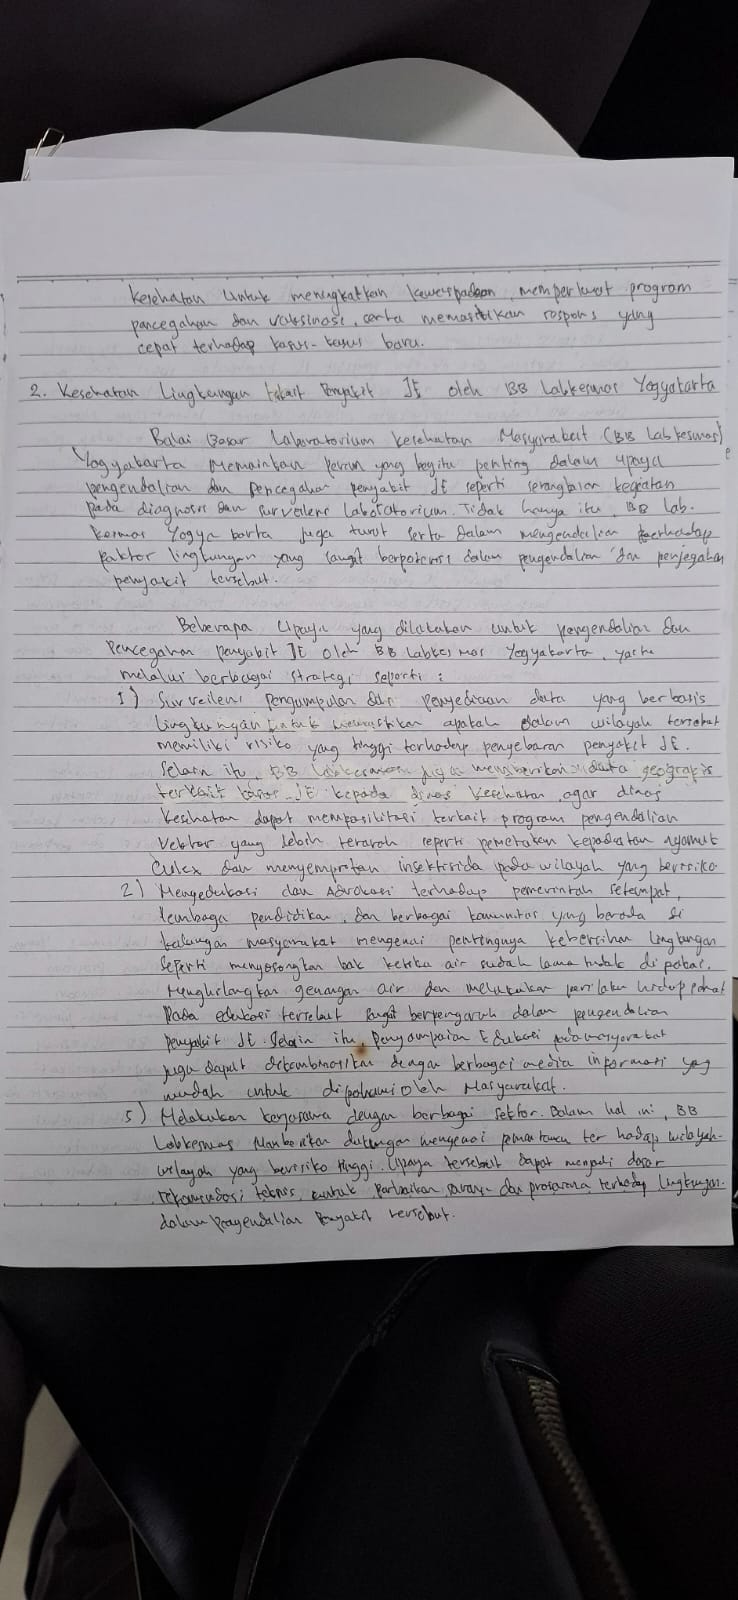 kesehatan untuk meningkatkan kewaspadaan, memperkuat program
pencegahan dan vaksinasi, serta memastikan respons yang
cepat terhadap kasus-kasus baru.
2. Kesehatan Lingkungan terkait Penyakit JE oleh BB Labkesmas Yogyakarta
Balai Besar Laboratorium kesehatan Masyarakat (BB Labkesmas)
Yogyakarta memainkan peran yang begitu penting dalam upaya
pengendalian dan pencegahan penyakit JE seperti serangkaian kegiatan
pada diagnosis dan surveilens laboratorium. Tidak hanya itu, BB Lab.
kesmas Yogya karta juga turut serta dalam mengendalian terhadap
faktor lingkungan yang sangat berpotensi dalam pengendalian dan penjegahan
penyakit tersebut.
Beberapa Upaya yang dilakukan untuk pengendalian dan
Pencegahan penyakit JE oleh BB Labkesmas Yogyakarta, yaitu
melalui berbagai strategi seperti :
1) Surveilens pengumpulan dan penyediaan data yang berbasis
lingkungan untuk memastikan apakah dalam wilayah tersebut
memiliki risiko yang tinggi terhadap penyebaran penyakit JE.
Selain itu, BB Labkesmas juga memberikan data geografis
terkait kasus JE kepada dinas kesehatan agar dinas
kesehatan dapat mempasilitasi terkait program pengendalian
Vektor yang lebih terarah seperti pemetaan kepadatan nyamuk
Culex dan menyemprotan insektisida pada wilayah yang berisiko
2) Mengedukasi dan Advokasi terhadap pemerintah setempat,
lembaga pendidikan, dan berbagai komunitas yang berada di
kalangan masyarakat mengenai pentingnya kebersihan lingkungan
Seperti mengosongkan bak ketika air sudah lama tidak di pakai,
Menghilangkan genangan air dan melakukan perilaku hidup sehat
Pada edukasi tersebut sangat berpengaruh dalam pengendalian
penyakit JE. Selain itu, Penyampaian Edukasi pada masyarakat
juga dapat dikombinasikan dengan berbagai media informasi yag
mudah untuk dipahami oleh Masyarakat.
3) Melakukan kerjasama dengan berbagai Sektor. Dalam hal ini, BB
Labkesmas Memberikan dukungan mengenai pemantauan ter hadap wilayah-
wilayah yang berisiko tinggi. Upaya tersebut dapat menjadi dasar
rekomendasi teknis untuk perbaikan sarana dan prasarana terhadap Lingkungan.
dalam pengendalian Penyakit tersebut.